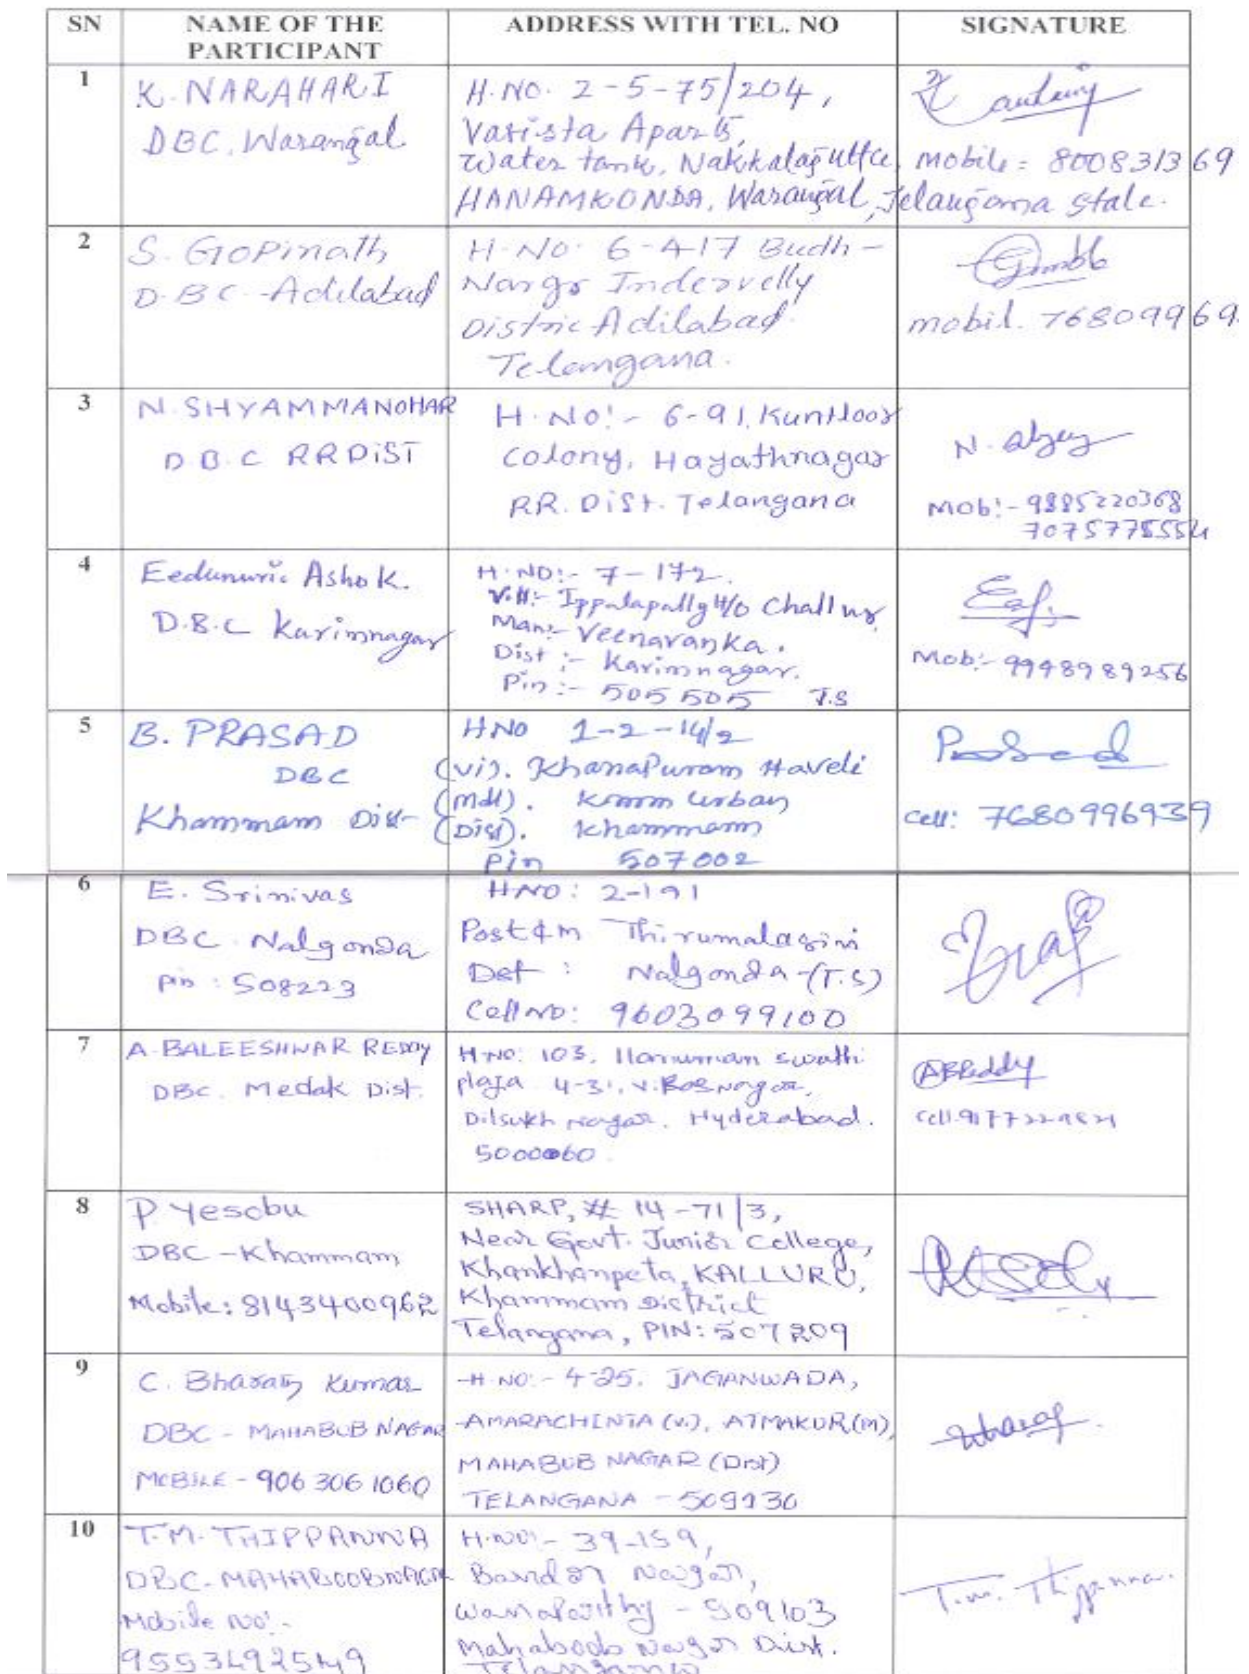 SN NAME OF THE PARTICIPANT ADDRESS WITH TEL. NO SIGNATURE
1
K. NARAHARI
DBC, Warangal
H.NO. 2-5-75/204,
Vasista Aparts,
Water tank, Nakkalagutta,
HANAMKONDA, Warangal, Telangana State.
Mobile: 800831369
2
S. Gopinath
D.B.C. Adilabad
H.No. 6-4-17 Budh-
Nargo Indervelly
Distric Adilabad
Telangana.
mobil. 76809969
3
N. SHYAMMANOHAR
D.B.C RRDiST
H.NO:- 6-91, Kuntloor
Colony, Hayathnagar
RR. DiSt. Telangana
Mob:- 9885220368
7075778554
4
Eedunuri Ashok.
D.B.C Karimnagar
H.NO:- 7-172.
Vill:- Ippalapally H/o Challur
Man:- Veenavanka.
Dist :- Karimnagar.
Pin :- 505505 T.S
Mob:- 9948989256
5
B. PRASAD
DBC
Khammam Dist-
HNO 1-2-14/2
(vi). Khanapuram Haveli
(mdl). Kmm urban
(Dist). Khammam
Pin 507002
Prasad
Cell: 7680996939
6
E. Srinivas
DBC Nalgonda
Pin : 508223
HNO: 2-191
Post & m Thirumalagiri
Det : Nalgonda-(T.S)
Cell no: 9603099100
7
A. BALEESHWAR REDDY
DBC. Medak Dist.
H.NO: 103, Hanuman swathi
plaza 4-31, Nagar,
Dilsukh Nagar. Hyderabad.
5000060
ABReddy
Cell.
8
P Yesobu
DBC - Khammam
Mobile: 8143400962
SHARP, # 14-71/3,
Near Govt. Junior College,
Khankhanpeta, KALLURU,
Khammam District
Telangana, PIN: 507209
9
C. Bharath Kumar
DBC - MAHABUB NAGAR
MOBILE - 9063061060
H.NO:- 4-25. JAGANWADA,
AMARACHINTA (v), ATMAKUR (M),
MAHABUB NAGAR (Dist)
TELANGANA - 509130
10
T.M. THIPPANNA
DBC- MAHABOOBNAGAR
Mobile No:-
9553492549
H.NO:- 39-159,
Nagar,
Wanaparthy - 509103
Mahaboob Nagar Dist.
Telangana
T.M. Thippanna.